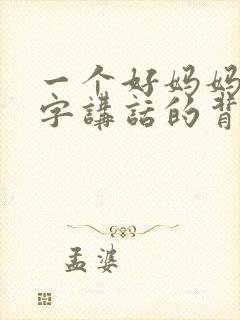 一个好妈妈
字講話的背
孟婆